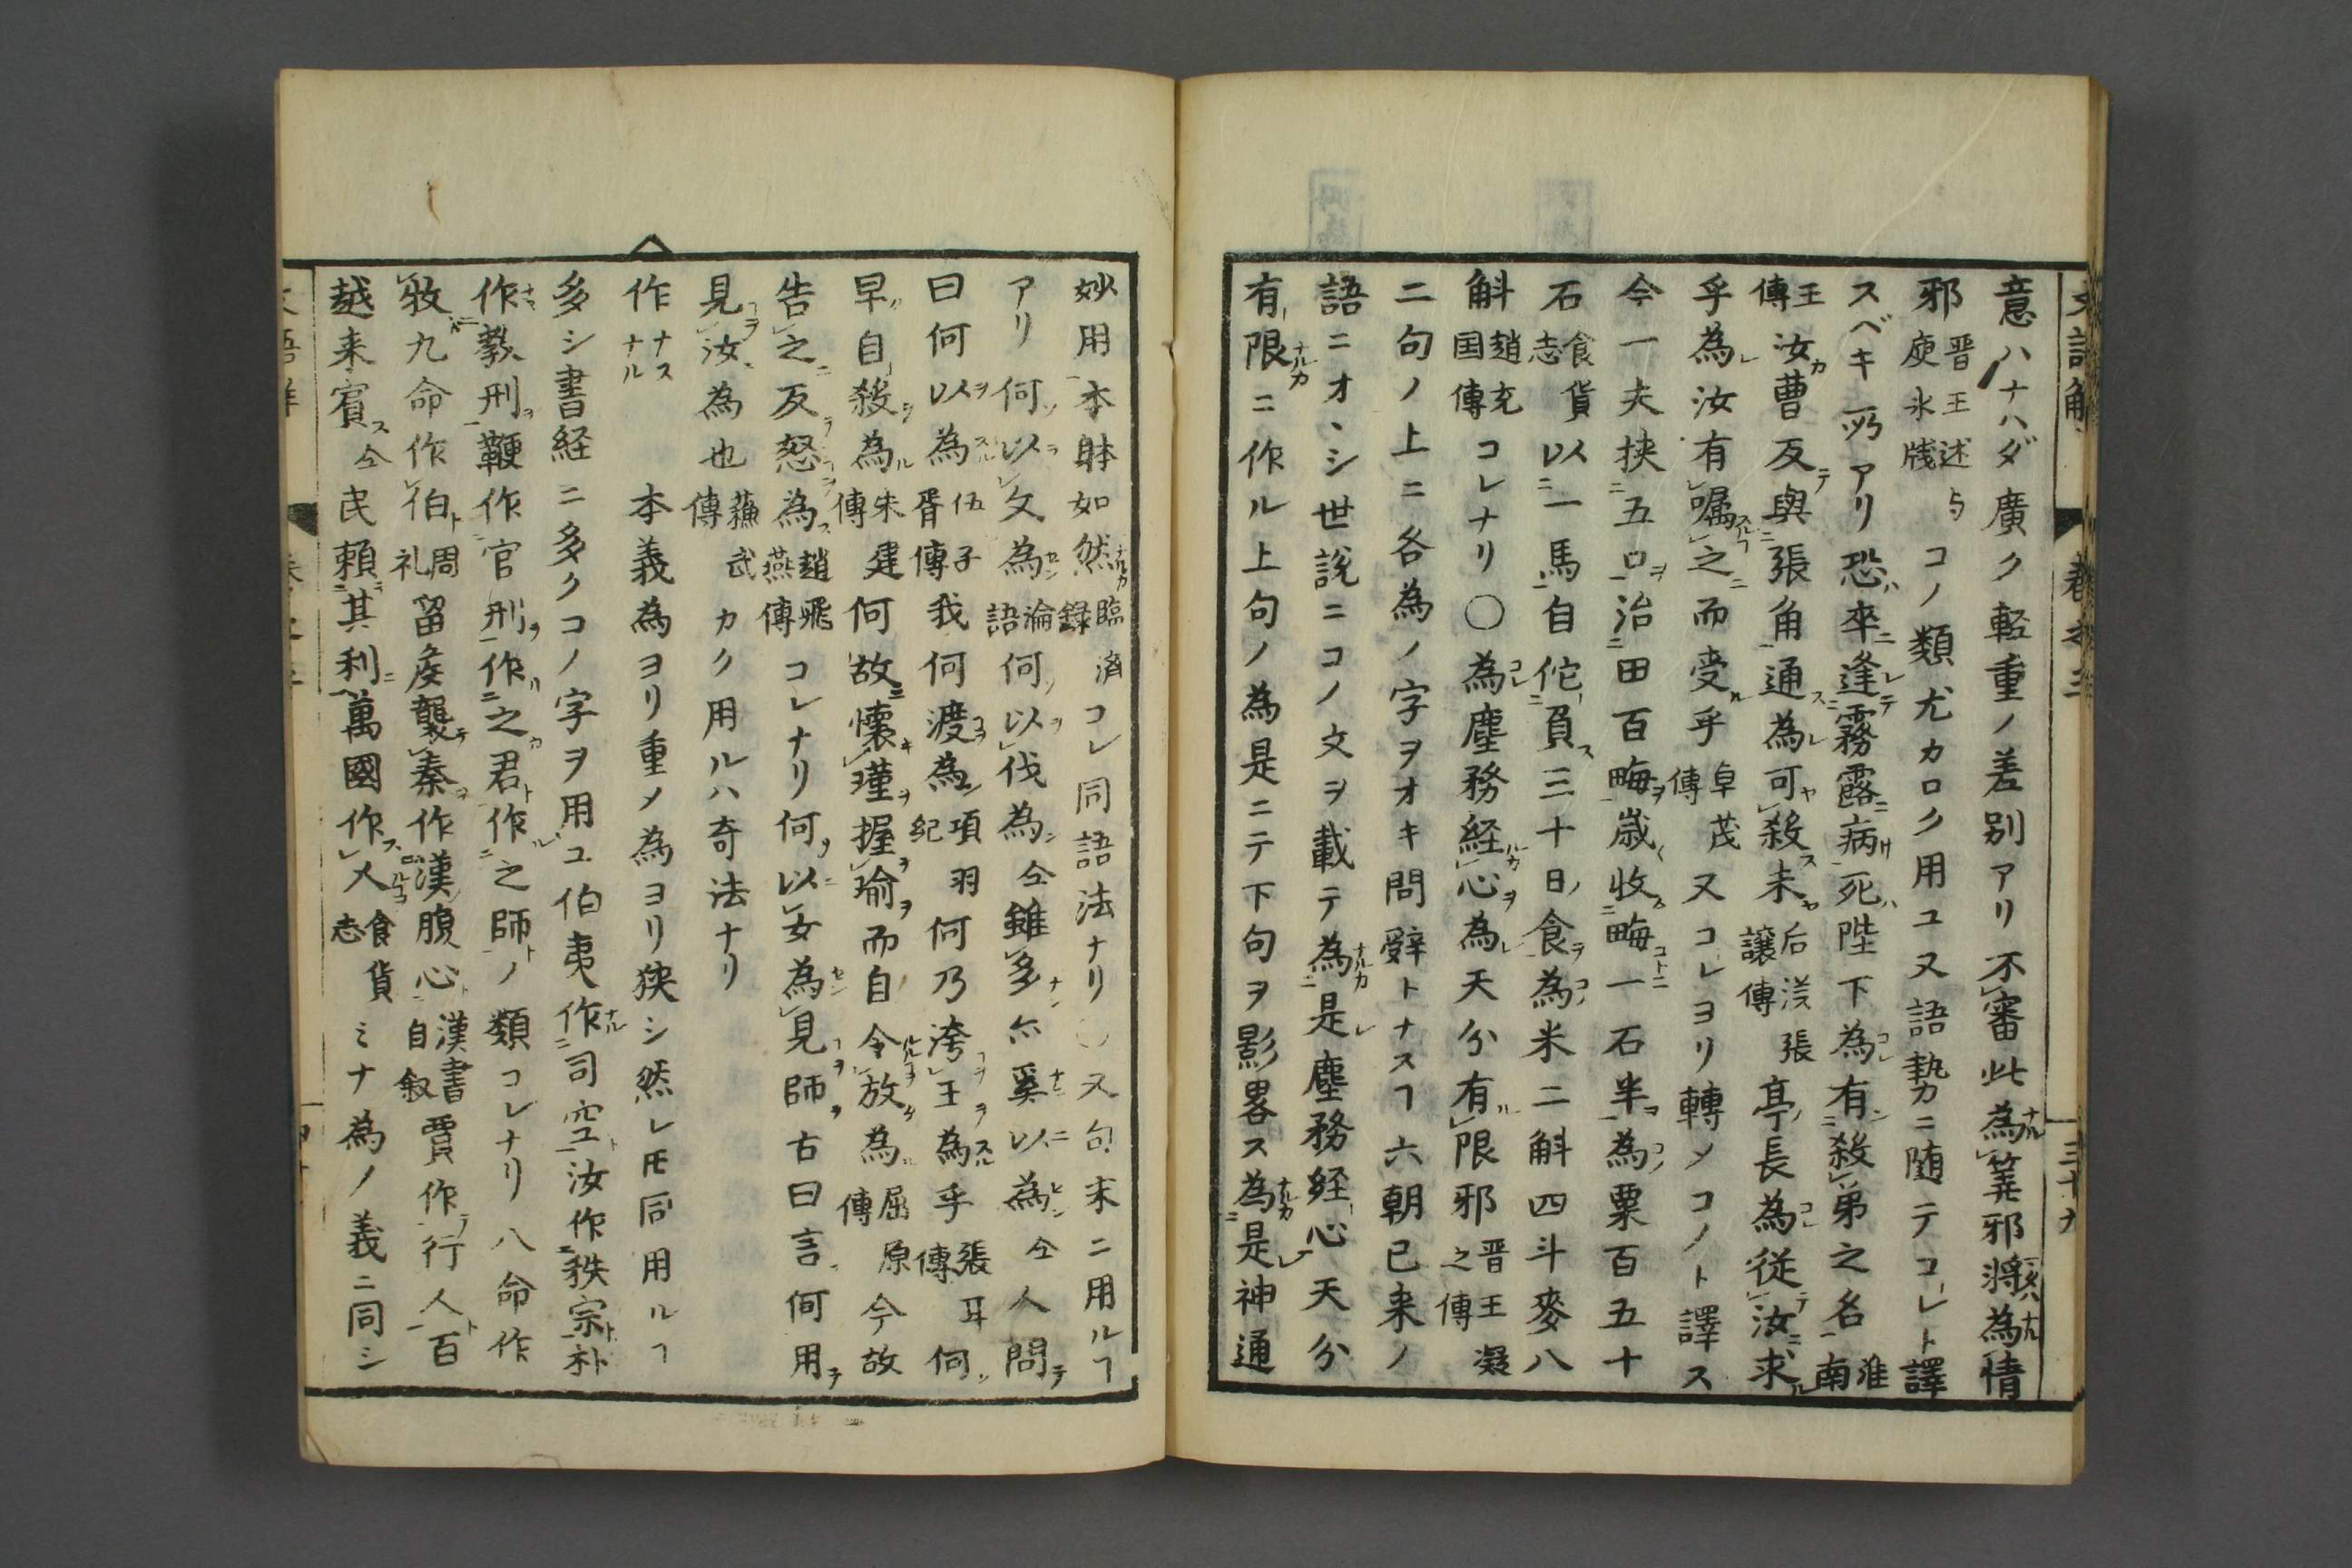 文語解 巻之三 三十九
意ハナハダ廣ク軽重ノ差別アリ不審此為筭邪將為情
邪晋王述庾氷牋与コノ類尤カロク用ユ又語勢ニ随テコレト譯
スベキ所アリ恐卒逢霧露病死陛下為有殺弟之名淮南
王傳汝曹反與張角通為可殺未后漢張讓傳亭長為従汝求
乎為汝有嘱之而受乎卓茂傳又コレヨリ轉メコノト譯ス
今一夫挟五口治田百畮歳收畮一石半為粟百五十
石食貨志以一馬自佗負三十日食為米二斛四斗麥八
斛趙充国傳コレナリ〇為塵務経心為天分有限邪晋王凝之傳
二句ノ上ニ各為ノ字ヲオキ問辭トナスヿ六朝已来ノ
語ニオヽシ世說ニコノ文ヲ載テ為是塵務経心天分
有限ニ作ル上句ノ為是ニテ下句ヲ影畧ス為是神通
妙用本躰如然臨済録コレ同語法ナリ〇又句末ニ用ルヿ
アリ何以文為論語何以伐為仝雖多亦奚以為仝人問
曰何以為伍子胥傳我何渡為項羽紀何乃洿王為乎張耳傳何
早自殺為朱建傳何故懐瑾握瑜而自令放為屈原傳今故
告之反怒為趙飛燕傳コレナリ何以女為見師古曰言何用
見汝為也蘓武傳カク用ルハ奇法ナリ
作ナスナル本義為ヨリ重メ為ヨリ狭シ然レ𪜈同用ルヿ
多シ書経ニ多クコノ字ヲ用ユ伯夷作司空汝作秩宗朴
作教刑鞭作官刑作之君作之師ノ類コレナリ八命作
牧九命作伯周礼留矦襲秦作漢腹心漢書自叙賈作行人百
越来賓仝民頼其利萬國作乂食貨志ミナ為ノ義ニ同シ